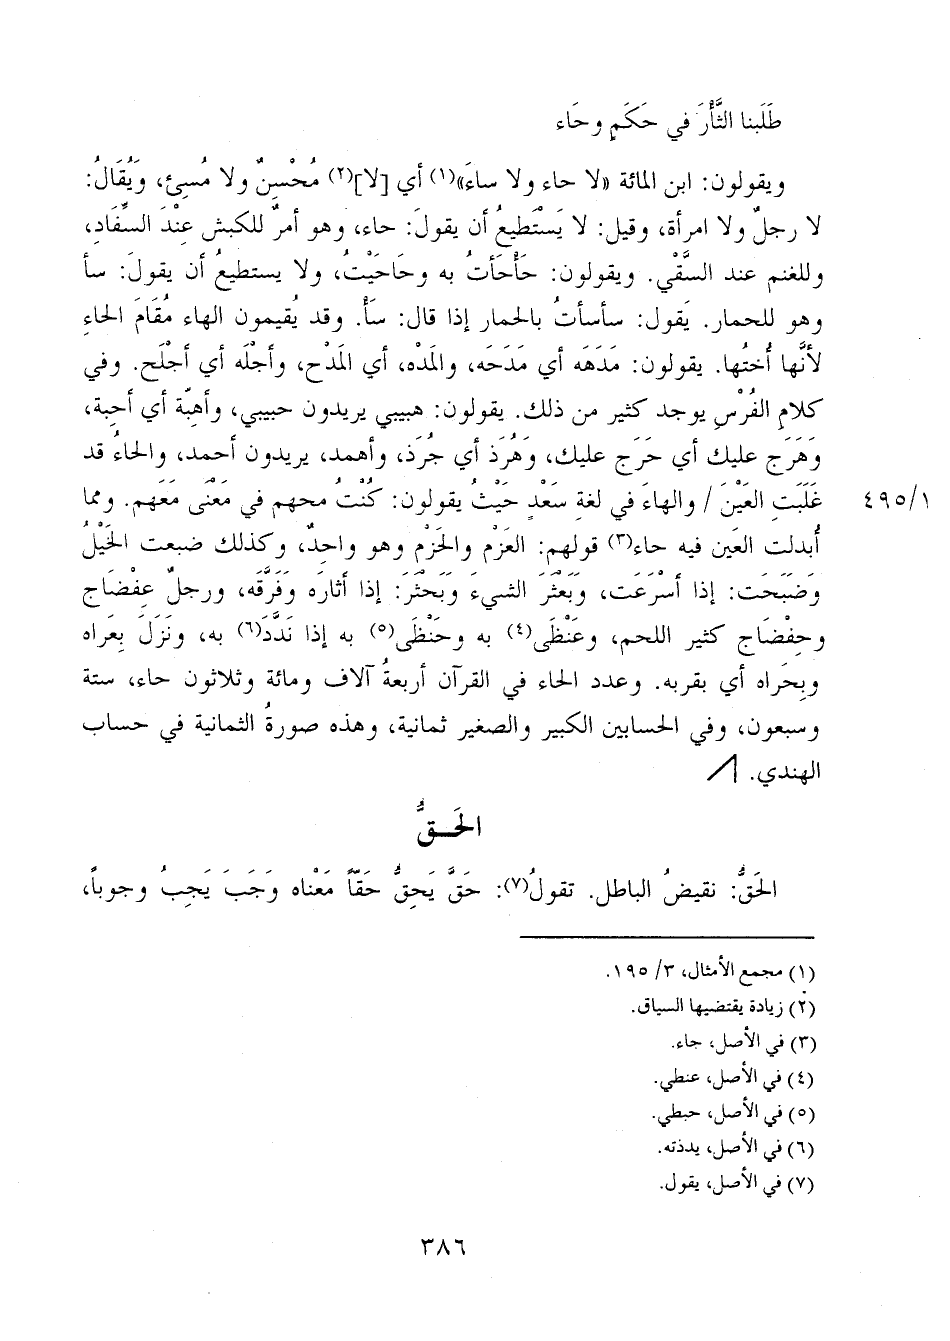 طَلَبنا الثَّأْرَ في حَكَمٍ وحَاء
ويقولون: ابن المائة «لا حاء ولا ساءَ»(١) أي [لا](٢) مُحْسِنٌ ولا مُسِئ، وَيُقَالُ:
لا رجلٌ ولا امرأة، وقيل: لا يَسْتَطيعُ أن يقولَ: حاء، وهو أمرٌ للكبش عِنْدَ السِّفَادِ،
وللغنم عند السَّقْيِ. ويقولون: حَأْحَأتُ به وحَاحَيْتُ، ولا يستطيعُ أن يقولَ: سأ
وهو للحمار. يَقول: سأسأتُ بالحمار إذا قال: سَأْ. وقد يُقيمون الهاء مُقَامَ الحاءِ
لأنَّها أُختُها. يقولون: مَدَهَه أي مَدَحَه، والمَدْه، أي المَدْح، وأجْلَه أي أجْلَح. وفي
كلامِ الفُرْسِ يوجد كثير من ذلك. يقولون: هبيبي يريدون حبيبي، وأهِبّة أي أحِبة،
وَهَرَج عليك أي حَرَج عليك، وَهُرَذ أي جُرَذ، وأهمد، يريدون أحمد، والحاءُ قد
غَلَبَتِ العَيْنَ / والهاءَ في لغةِ سَعْدٍ حَيْثُ يقولون: كُنْتُ محهم في مَعْنَى مَعَهم. ومما
٤٩٥/١
أُبدلت العَين فيه حاء(٣) قولهم: العَزْم والحَزْم وهو واحِدٌ، وكذلك ضبعت الخَيْلُ
وَضَبَحَت: إذا أسْرَعَت، وَبَعْثَرَ الشيءَ وَبَحْثَرَ: إذا أثارَه وَفَرَّقَه، ورجلٌ عِفْضَاج
وحِفْضَاج كثير اللحم، وعَنْظَى(٤) به وحَنْظَى(٥) به إذا نَدَّدَ(٦) به، ونَزَلَ بِعَراه
وبِحَراه أي بقربه. وعدد الحاء في القرآن أربعةُ آلاف ومائة وثلاثون حاء، ستة
وسبعون، وفي الحسابين الكبير والصغير ثمانية، وهذه صورةُ الثمانية في حساب
الهندي. ٨
الحَقُّ
الحَقُّ: نقيضُ الباطل. تقولُ(٧): حَقَّ يَحِقُّ حَقّاً مَعْناه وَجَبَ يَجِبُ وجوباً،
(١) مجمع الأمثال، ٣/ ١٩٥.
(٢) زيادة يقتضيها السياق.
(٣) في الأصل، جاء.
(٤) في الأصل، عنطي.
(٥) في الأصل، حبطي.
(٦) في الأصل، يددته.
(٧) في الأصل، يقول.
٣٨٦